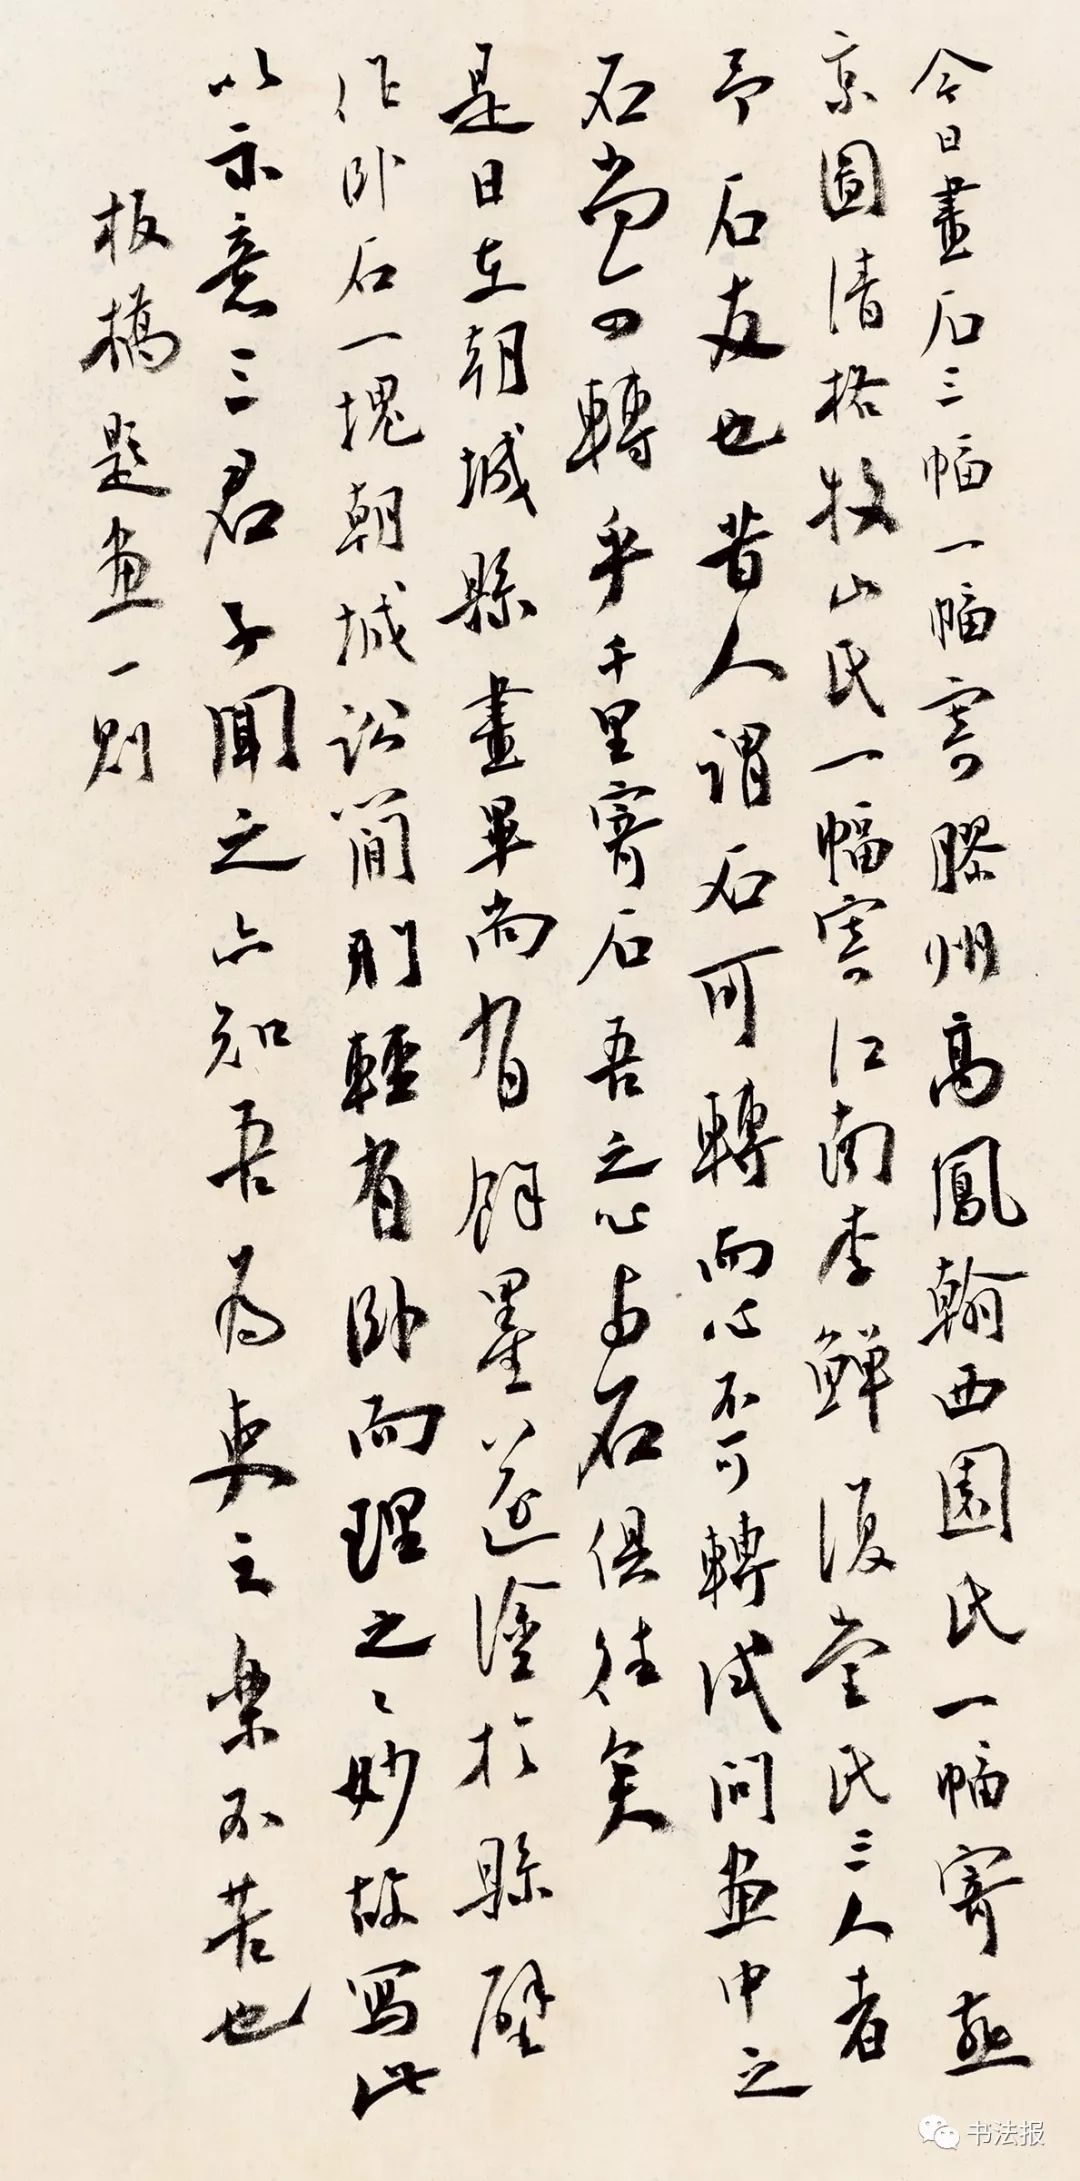 今日畫石三幅一幅寄膠州高鳳翰西園氏一幅寄燕
京圖清格牧山氏一幅寄江南李鱓復堂氏三人者
予石友也昔人謂石可轉而心不可轉試問画中之
石尚可轉乎千里寄石吾之心与石俱往矣
是日在朝城縣畫畢尚有餘墨遂塗於縣壁
作卧石一塊朝城訟簡刑輕有卧而理之之妙故寫此
以示意三君子聞之亦知吾為吏之樂不苦也
板橋題画一則
书法报